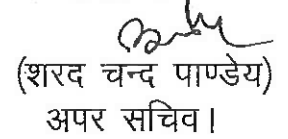 (शरद चन्द पाण्डेय)
अपर सचिव।